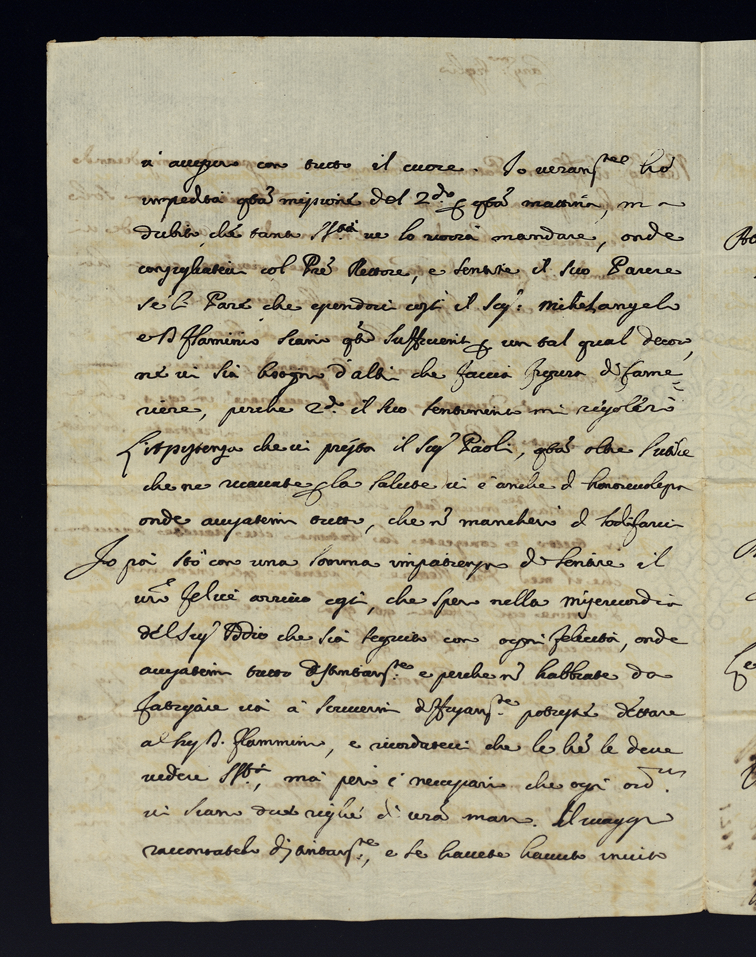 vi auguro con tutto il cuore. Io veram.te ho
impedita q.ta missione del 2.do p q.ta mattina, ma
dubito che tanto S. ve lo vorrà mandare, onde
consigliatevi col Pre Rettore, e sentite il suo Parere
se li Pare che essendovi costì il Sig.r Michelangelo
e D Flaminio siano q.ti sufficienti p un tal qual decoro,
ne vi sia bisogno d'altri che faccia figura di Came=
riere, perche 2.do il suo sentimento mi regolerò
L'Assistenza che vi presta il Sig.r Paoli, q.ta oltre l'utile
che ne ricavate p la salute vi è anche d honorevolezza
onde avisatemi tutto, che nō mancherò d sodisfarvi
Io poi stò con una somma impatienza di sentire il
vrō felice arrivo costì, che spero nella misericordia
del Sig.r Iddio che sia seguito con ogni felicità, onde
avisatemi tutto distintam.te e perche nō habbiate da
fatigare voi à scrivermi diffusam.te potreste dettare
al Sig D. Flamminio, e ricordatevi che le lrē le deve
vedere, mà però è necessario che ogni ord.rio
vi siano due righe di vrā mano. Il viaggio
raccontatelo distintam.te, e se havete havuto invito